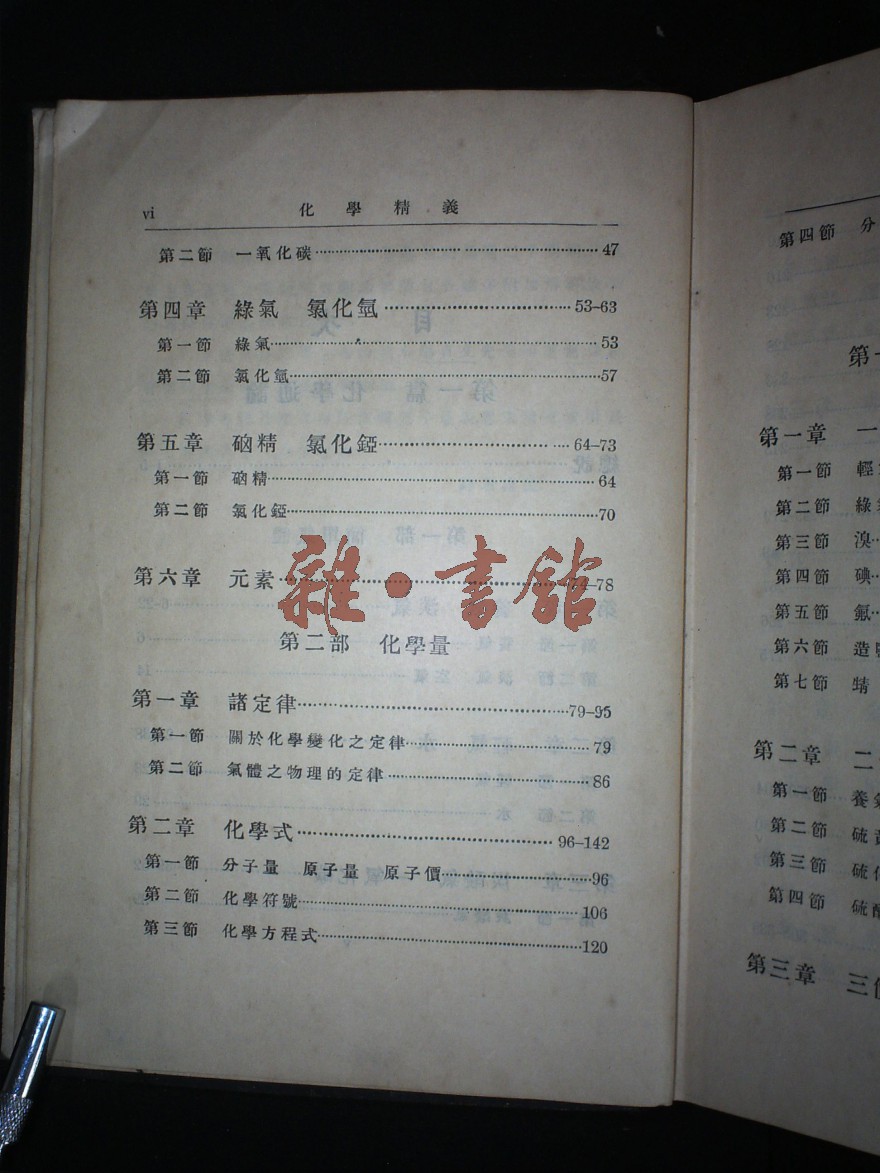 vi 化學精義
第二節 一氧化碳 47
第四章 綠氣 氯化氫 53–63
第一節 綠氣 53
第二節 氯化氫 57
第五章 硇精 氯化錏 64–73
第一節 硇精 64
第二節 氯化錏 70
第六章 元素 74–78
雜·書館
第二部 化學量
第一章 諸定律 79–95
第一節 關於化學變化之定律 79
第二節 氣體之物理的定律 86
第二章 化學式 96–142
第一節 分子量 原子量 原子價 96
第二節 化學符號 106
第三節 化學方程式 120
第四節 分
第一章 一
第一節 輕
第二節 綠
第三節 溴
第四節 碘
第五節 氟
第六節 造
第七節
第二章 二
第一節 養
第二節 硫
第三節 硫
第四節 硫
第三章 三